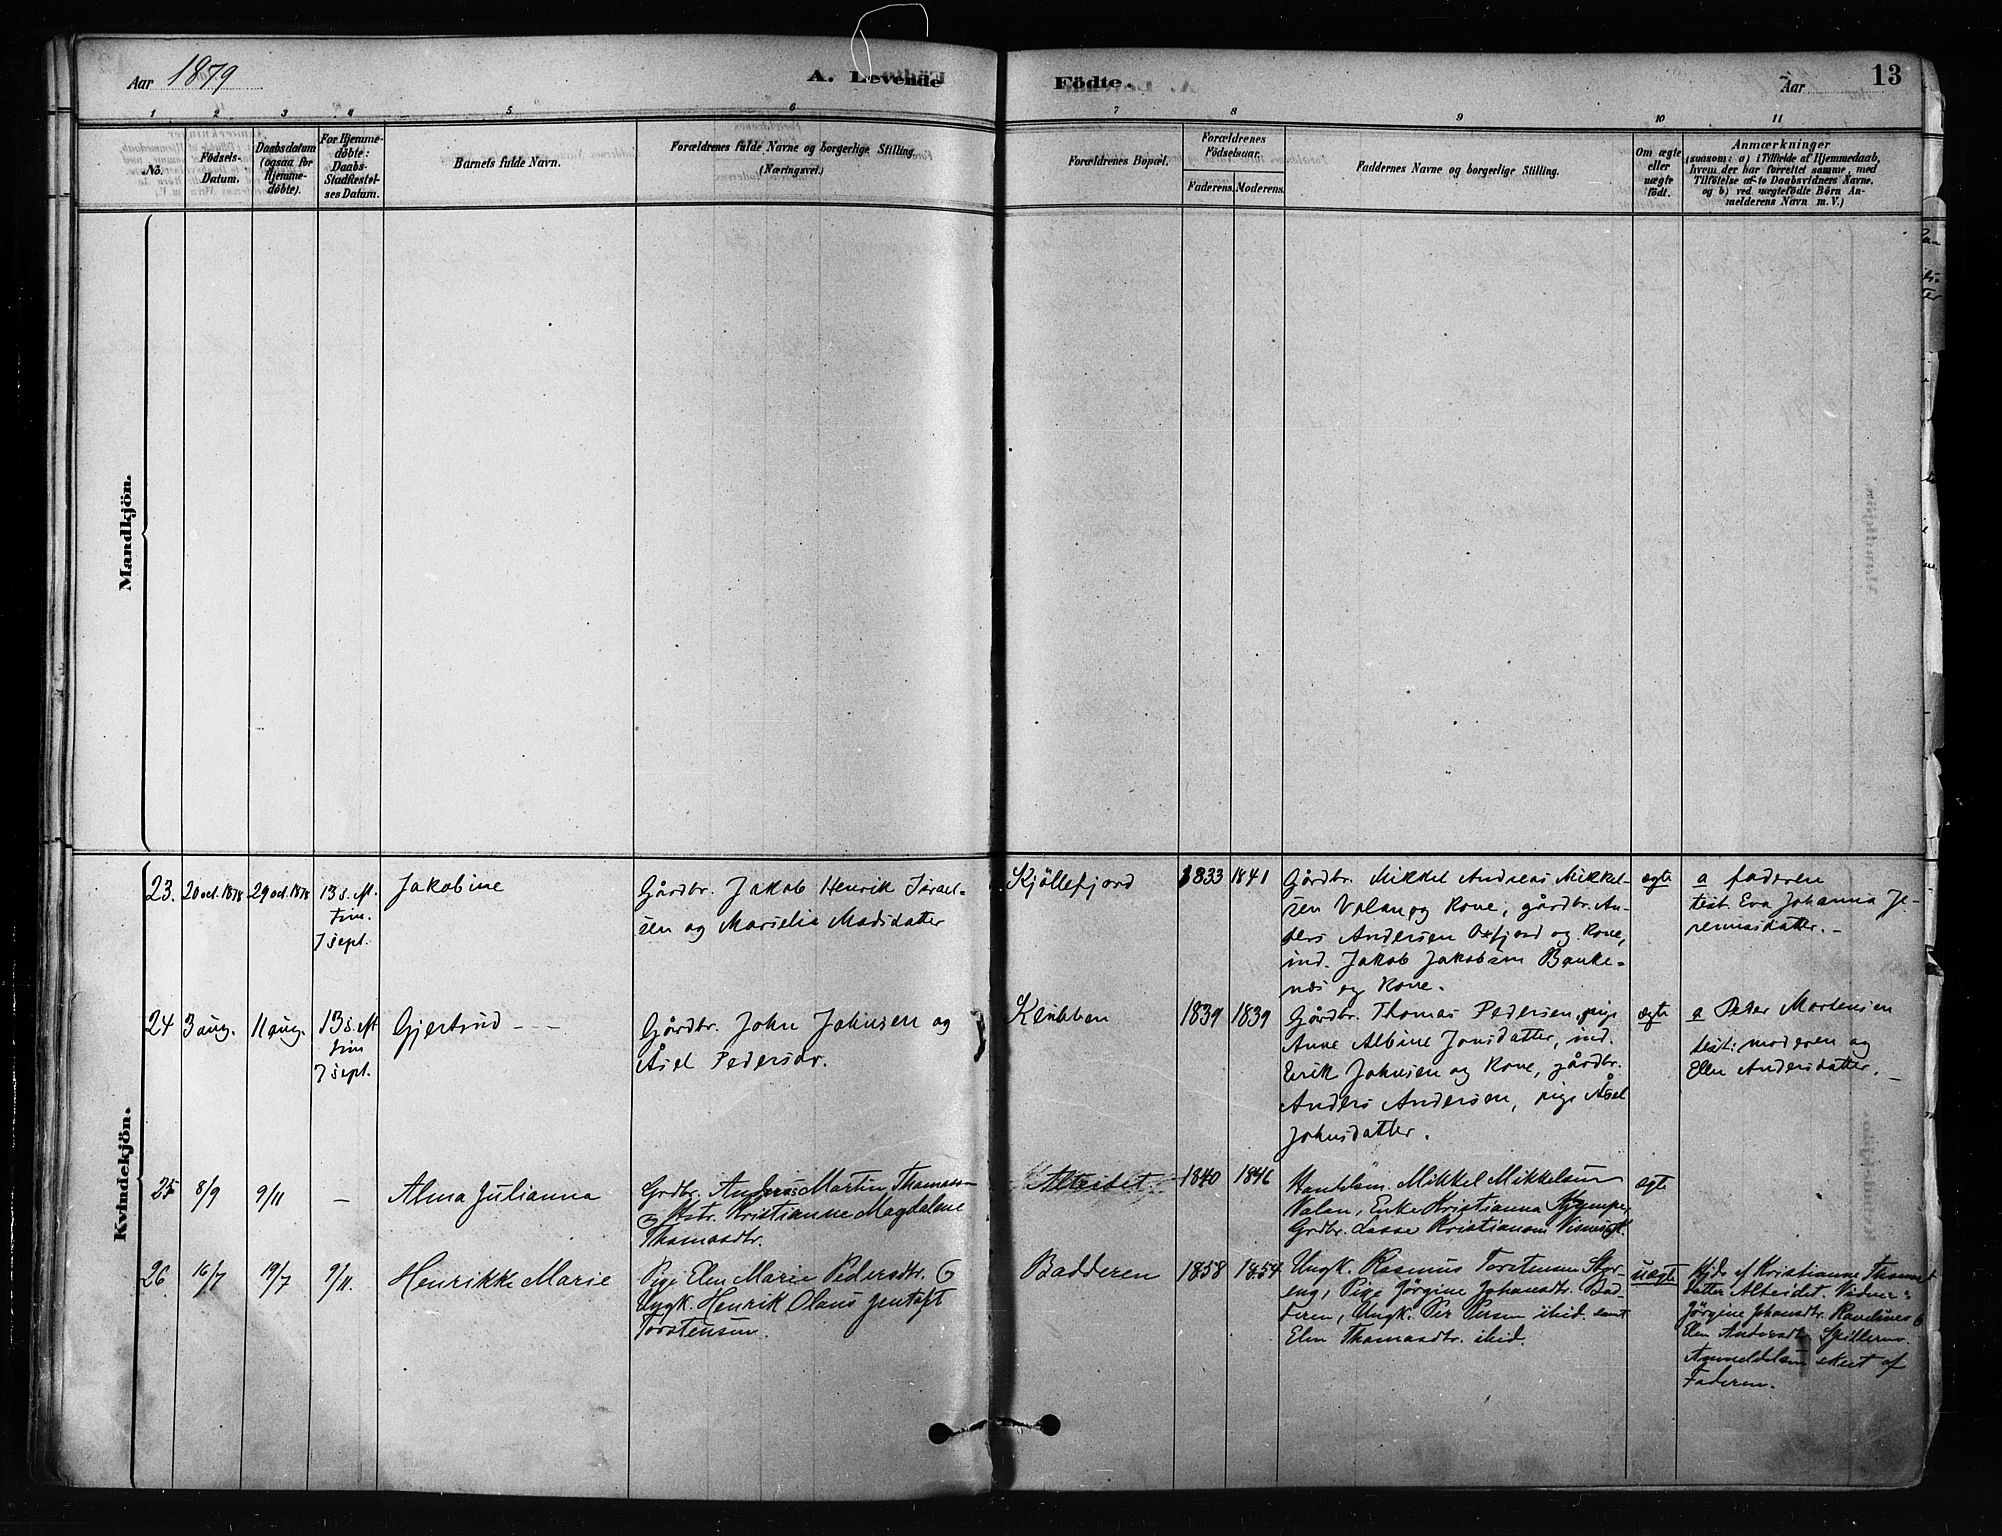 Aar 1879
A. Levende
Födte.
Aar
13
1 2 3 4 5 6 7 8 9 10 11
No.
Födsels-
Datum.
Daabsdatum
(ogsaa for
Hjemme-
döbte).
For Hjemme-
döbte:
Daabs-
Stadfæstel-
ses Datum.
Barnets fulde Navn.
Forældrenes fulde Navne og borgerlige Stilling.
(Næringsvei.)
Forældrenes Bopæl.
Forældrenes
Födselsaar.
Faderens. Moderens.
Faddernes Navne og borgerlige Stilling.
Om ægte
eller
uægte
födt.
Anmærkninger
(saasom: a) i Tilfælde af Hjemmedaab,
hvem der har forrettet samme, med
Tilföielse af to Daabsvidners Navne,
og b) ved uægtefödte Börn An-
melderens Navn m. V.)
Mandkjön.
Kvindekjön.
23. 20 oct. 1878 29 oct. 1878
13 s. M.
trin.
7 sept.
Jakobine
Gårdbr. Jakob Henrik Israel-
sen og Marselie Madsdatter
Kjöllefjord
1833 1841
Gårdbr. Mikkel Andreas Mikkel-
sen Valan og Kone, gårdbr. An-
ders Andersen Oxfjord og Kone,
ind. Jakob Jakobsen Banke-
næs og Kone.
ægte
a faderen
test. Eva Johanna Je-
remiasdatter. -
24 3 aug. 11 aug.
13 s. M
trin
7 sept.
Gjertrud - -
Gårdbr. John Johnsen og
Åsel Pedersdr.
Klubben
1839 1839
Gårdbr. Thomas Pedersen, pige
Anne Albine Jonsdatter, ind.
Erik Johnsen og Kone, gårdbr.
Anders Andersen, pige Åsel
Johnsdatter.
ægte
a Peter Mortensen
test: moderen og
Ellen Andersdatter. -
25 8/9 9/11 -
Alma Julianna
Grdbr. Andreas Martin Thomassen
og Hstr. Kristianne Magdalene
Thomasdtr.
Alteidet
1840 1846
Handelsm. Mikkel Mikkelsen
Valan, Enke Kristianna Kjempe,
Grdbr. Lasse Kristiansen
ægte
26. 16/7 19/7 9/11.
Henrikke Marie
Pige Elen Marie Pedersdtr. og
Ungk. Henrik Olaus Jentoft
Torstensen.
Badderen
1858 1854
Ungk. Rasmus Torstensen Stor-
eng, Pige Jörgine Johansdtr. Bad-
deren, Ungk. Per Persen ibid. samt
Elen Thomasdtr. ibid.
uægte
Hjdb. af Kristianne Thomas-
datter Alteidet. Vidner:
Jörgine Johansdtr. og
Elen Andersdtr.
Anmeldelsen skeet af
Faderen.